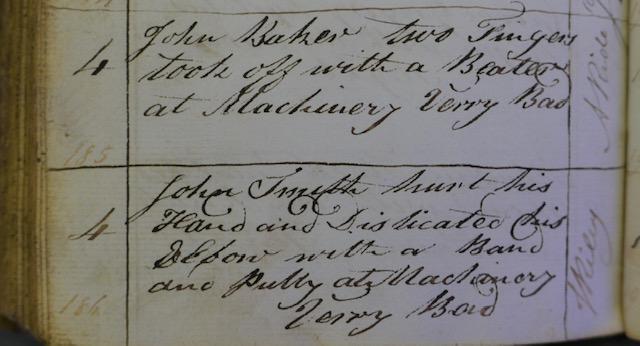 John Baker two Fingers
4
took off with a Beater
at Machinery Verry Bad
A Riley
185
John Smith hurt his
4
Hand and Dislicated his
Elbow with a Band
and Pully at Machinery
Verry Bad
Riley
186